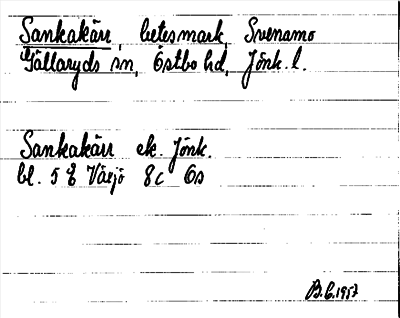 Sankakärr, betesmark, Svenamo
Gällaryds sn, Östbo hd, Jönk. l.
Sankakärr ek. Jönk.
bl. 5 Värjö 8c Ös
B.E. 1957